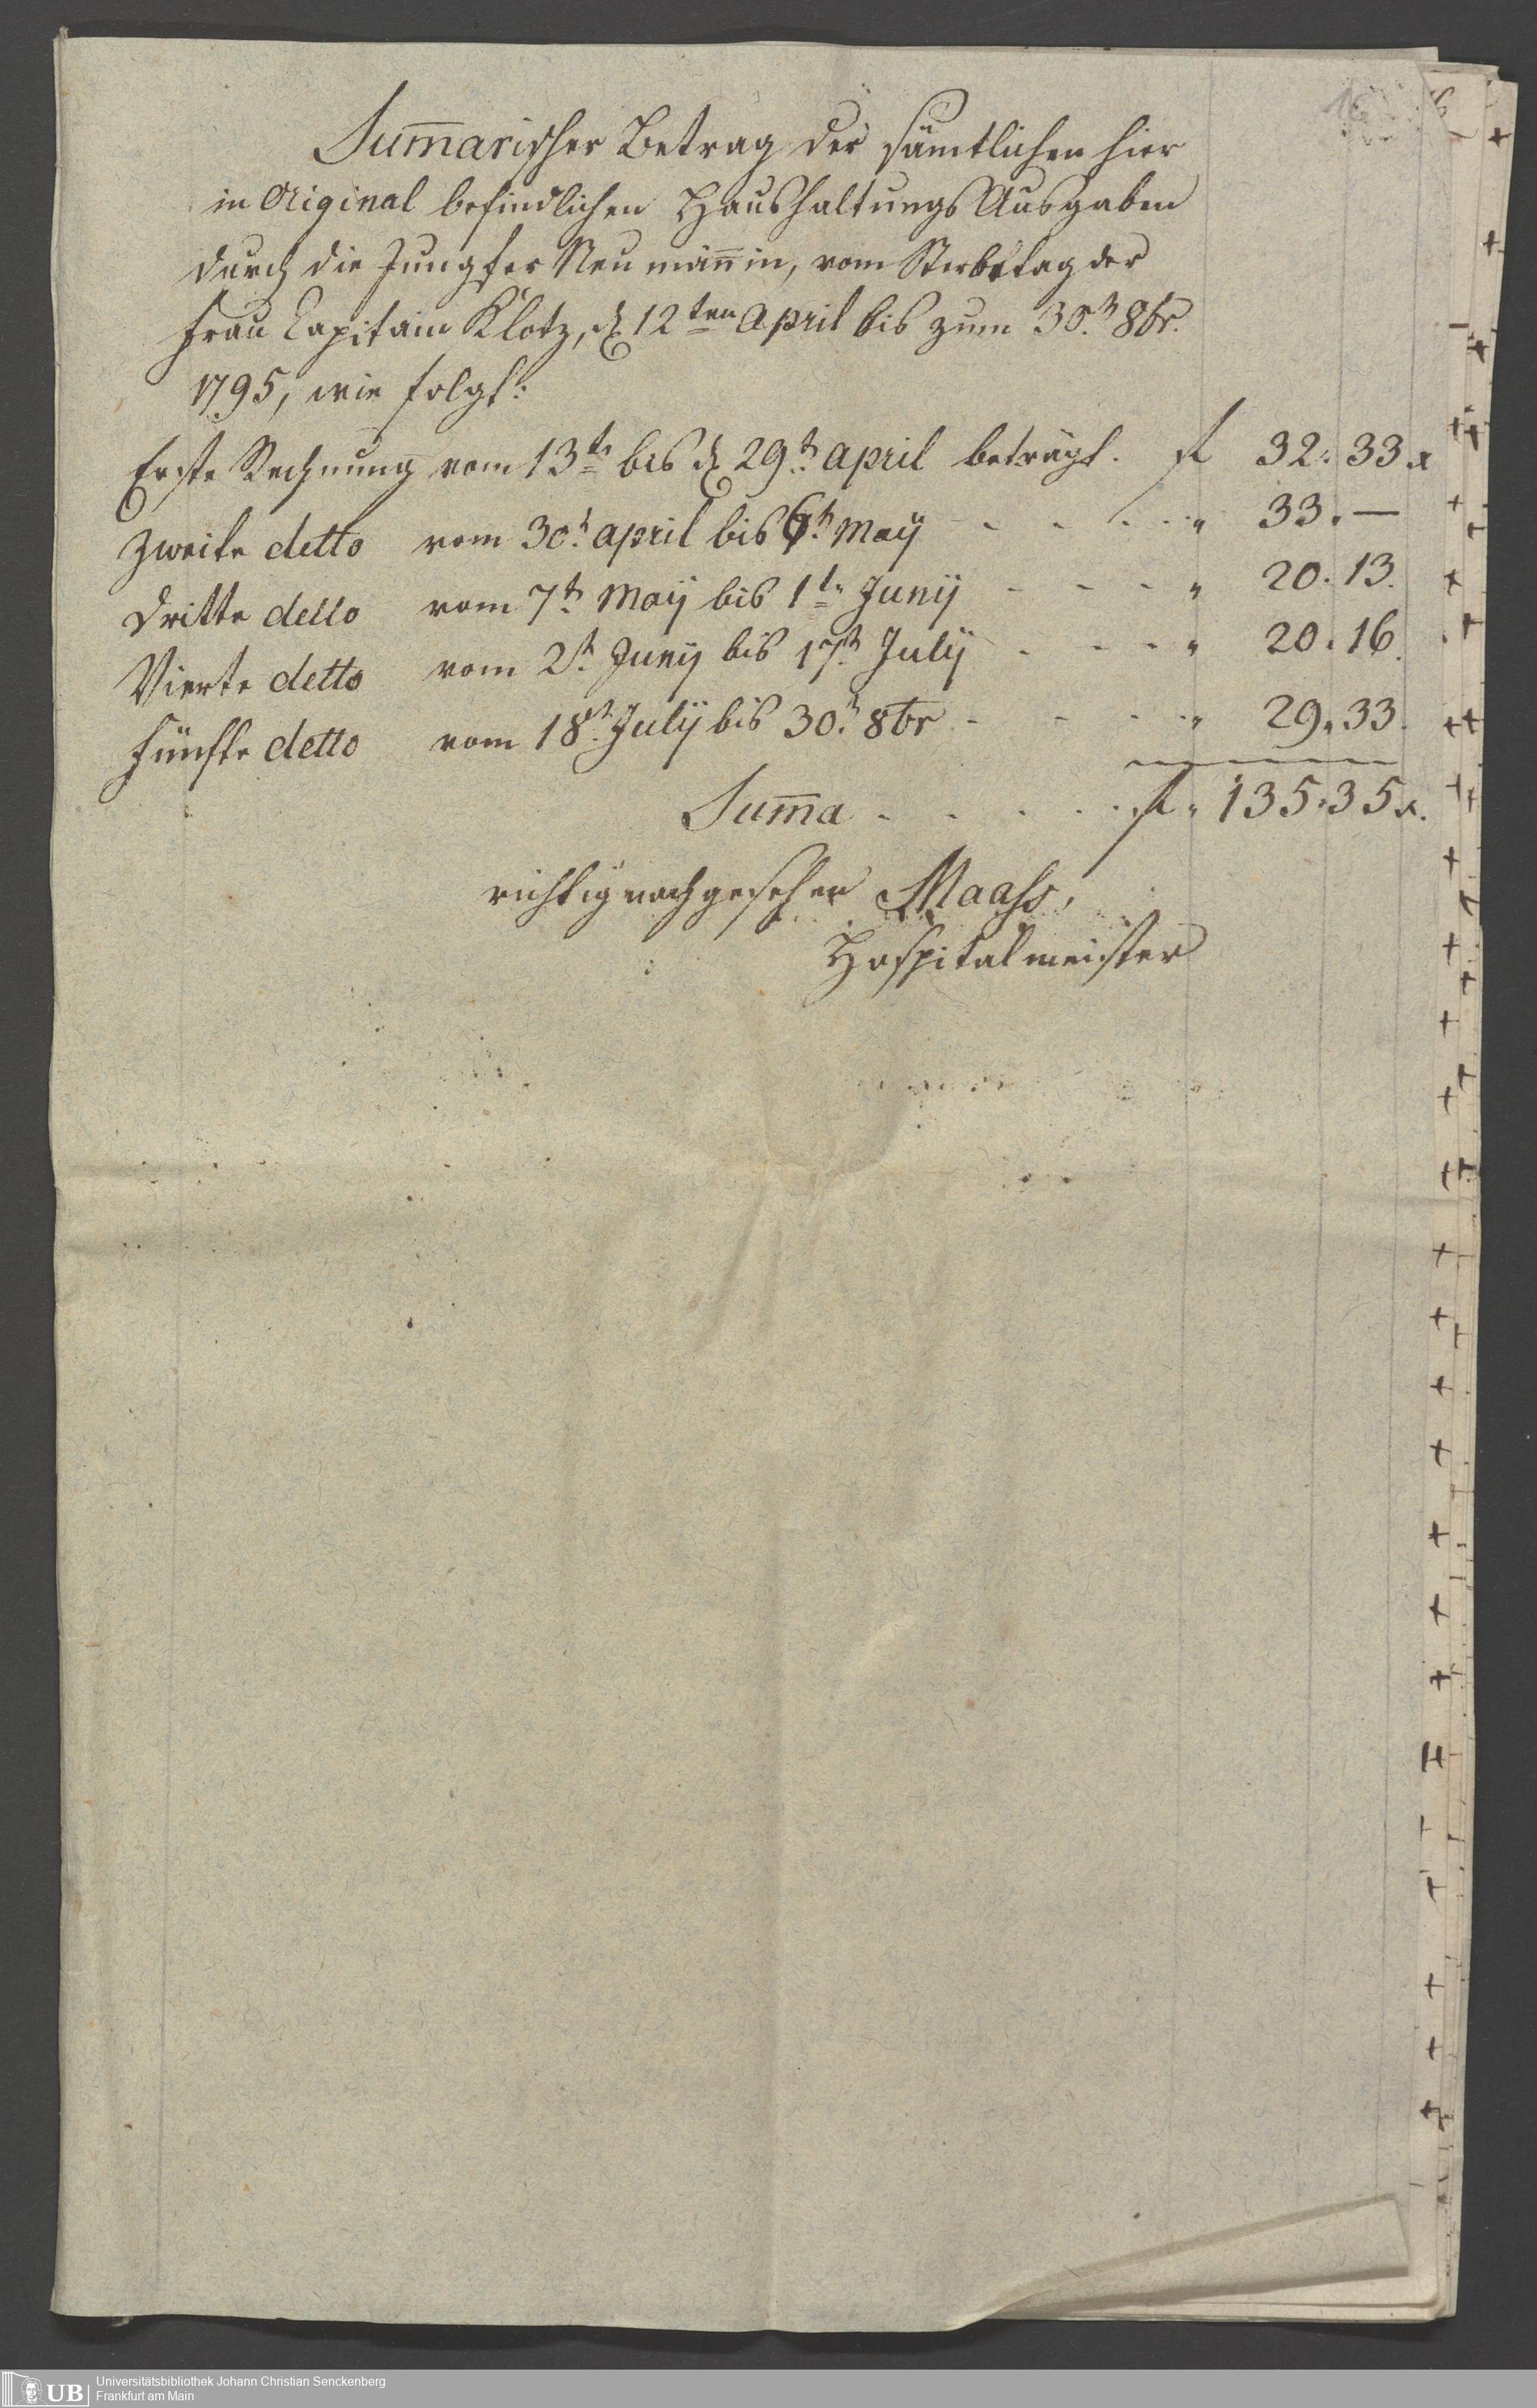 Sum̅arischer Betrag der sämtlichen hier
in Original befindlichen Haushaltungs Ausgaben
durch die Jungfer Neumän̅in, vom Sterbetag der
Frau Capitain Klotz, d. 12ten April bis zum 30.t 8br.
1795, wie folgt:
Erste Rechnung vom 13te bis d. 29.t April beträgt. fl 32. 33 x
Zweite detto vom 30.t April bis 6.t Maÿ - - - - " 33. —
Dritte detto vom 7.t Maÿ bis 1te Junÿ - - - " 20. 13.
Vierte detto vom 2.t Junÿ bis 17.t Julÿ - - - " 20. 16.
Fünfte detto vom 18.t Julÿ bis 30.t 8br - - - " 29. 33.
Sum̅a - - - - fl. 135. 35 x.
richtig nachgesehen Maass,
Hospitalmeister
UB Universitätsbibliothek Johann Christian Senckenberg
Frankfurt am Main